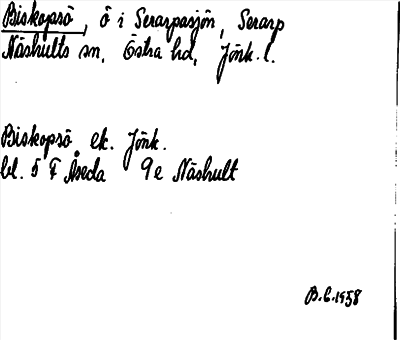 Biskopsö, ö i Serarpasjön, Serarp
Näshults sn, Östra hd, Jönk. l.
Biskopsö ek. Jönk.
bl. 5 F Åseda 9e Näshult
B.C. 1958